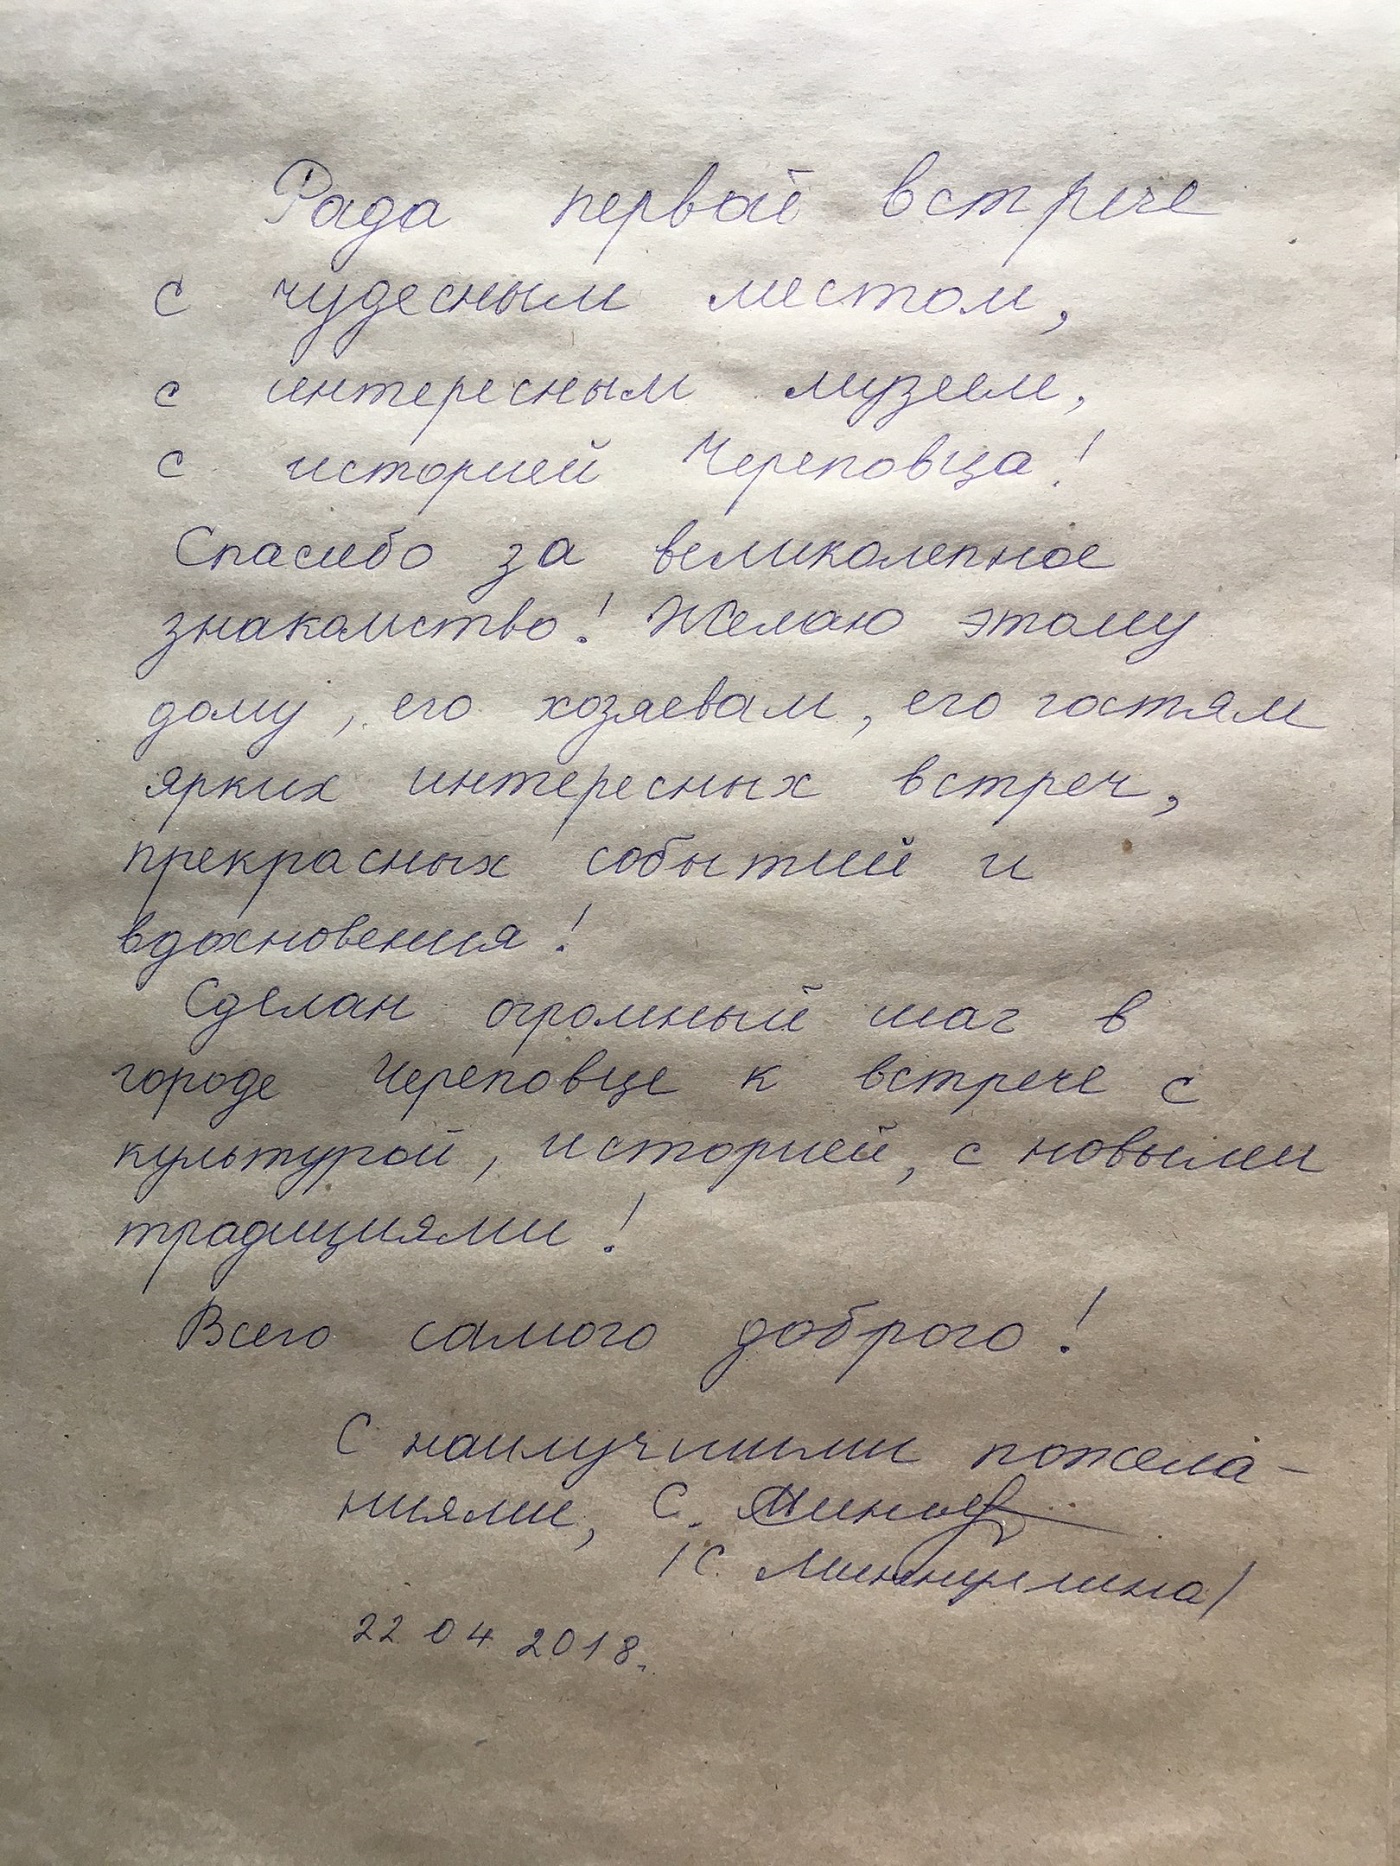 Рада первой встрече
с чудесным местом,
с интересным музеем,
с историей Череповца!
Спасибо за великолепное
знакомство! Желаю этому
дому, его хозяевам, его гостям
ярких интересных встреч,
прекрасных событий и
вдохновения!
Сделан огромный шаг в
городе Череповце к встрече с
культурой, историей, с новыми
традициями!
Всего самого доброго!
С наилучшими пожела-
ниями, С.
/С. Миннуллина/
22 04 2018.